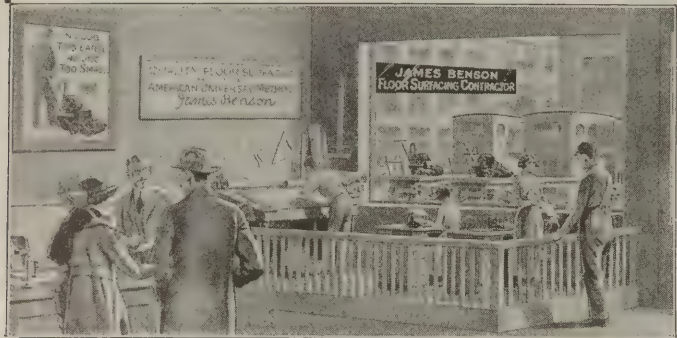 NO JOB
TOO LARGE
NO JOB
TOO SMALL
QUALITY FLOOR SURFACING
AMERICAN UNIVERSAL METHOD
James Benson
JAMES BENSON
FLOOR SURFACING CONTRACTOR